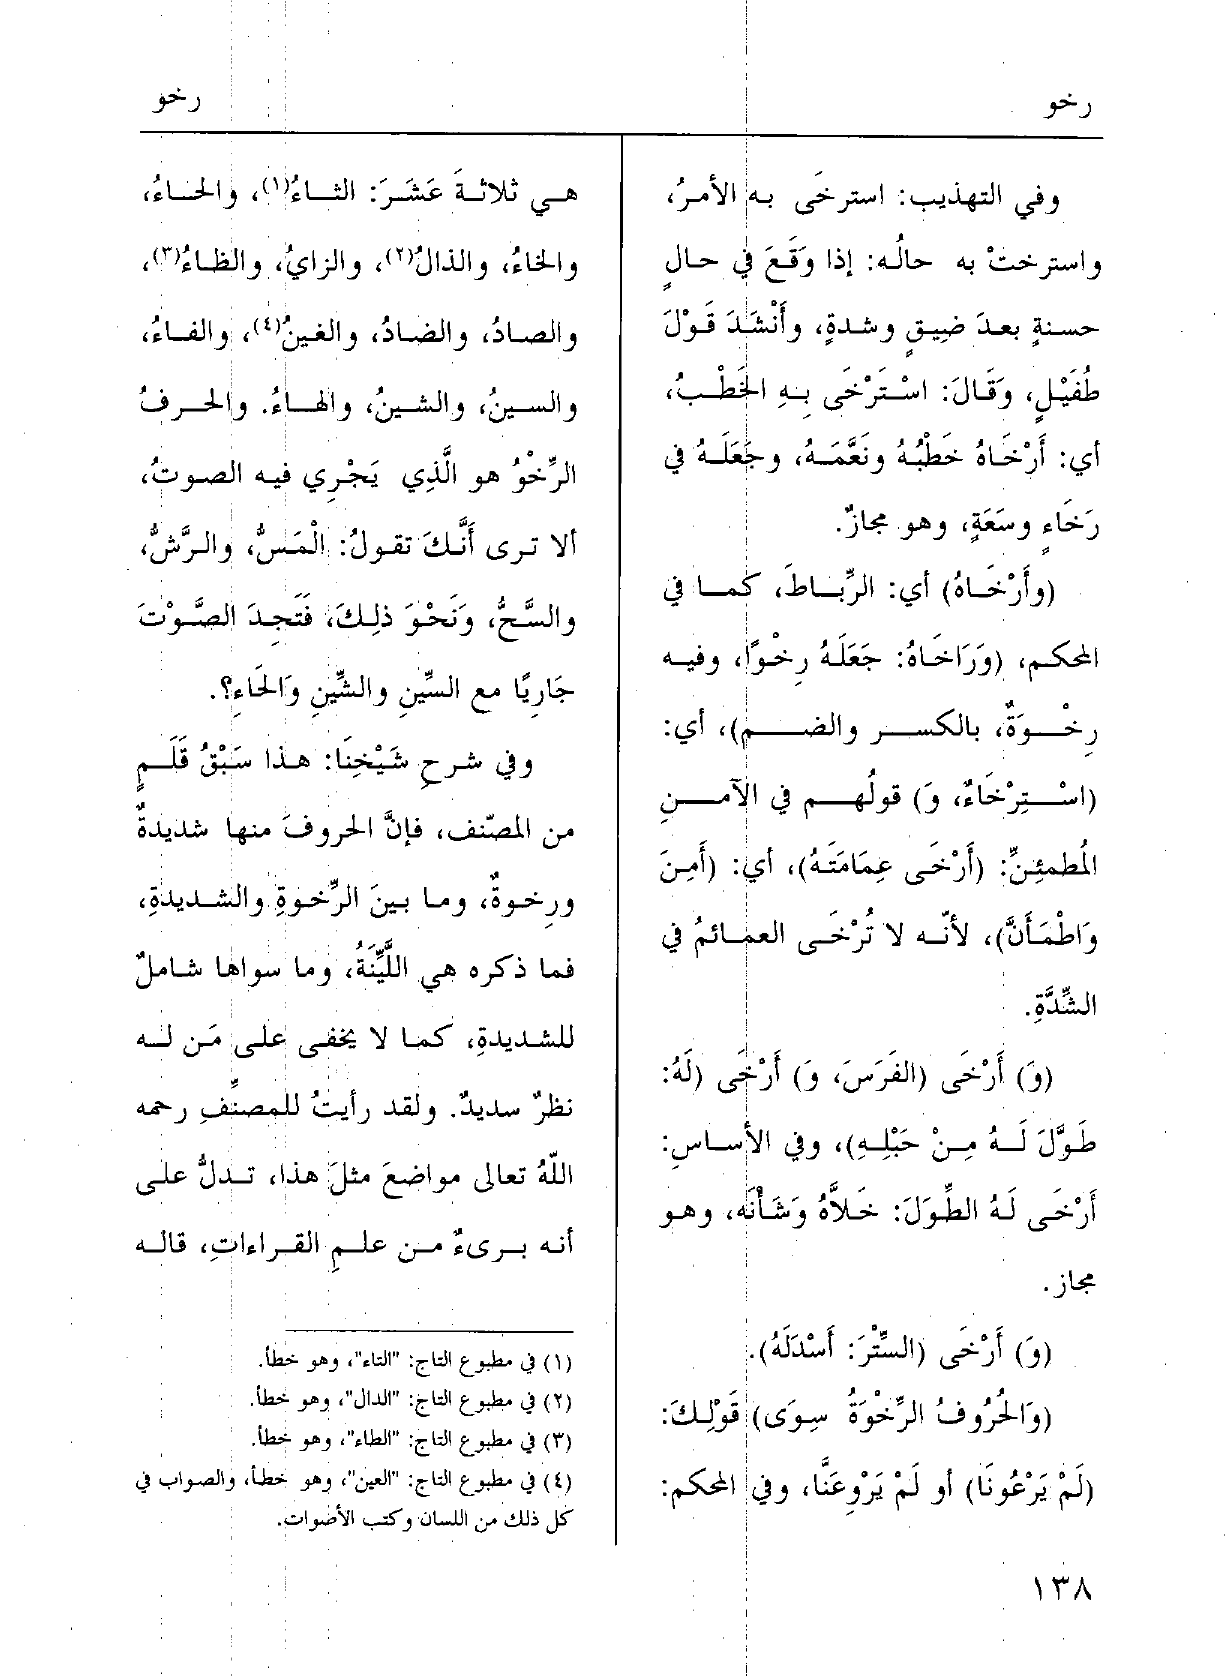 رخو
رخو
وفي التهذيب: استرخَى به الأمرُ،
واسترختْ به حالُه: إذا وَقَعَ في حالٍ
حسنةٍ بعدَ ضيقٍ وشدةٍ، وأَنْشَدَ قَوْلَ
طُفَيْلٍ، وَقَالَ: اسْتَرْخَى بِهِ الخَطْبُ،
أي: أَرْخَاهُ خَطْبُهُ ونَعَّمَهُ، وجَعَلَهُ في
رَخَاءٍ وسَعَةٍ، وهو مجازٌ.
(وأَرْخَاهُ) أي: الرِّبَاطَ، كما في
المحكم، (وَرَاخَاهُ: جَعَلَهُ رِخْوًا، وفيه
رِخْوَةٌ، بالكسر والضم)، أي:
(اسْتِرْخَاءٌ، وَ) قولُهم في الآمنِ
المُطمئِنِّ: (أَرْخَى عِمَامَتَهُ)، أي: (أَمِنَ
وَاطْمَأَنَّ)، لأنّه لا تُرْخَى العمائمُ في
الشِّدَّةِ.
(وَ) أَرْخَى (الفَرَسَ، وَ) أَرْخَى (لَهُ:
طَوَّلَ لَهُ مِنْ حَبْلِهِ)، وفي الأساسِ:
أَرْخَى لَهُ الطِّوَلَ: خَلاَّهُ وَشَأْنَه، وهو
مجاز.
(وَ) أَرْخَى (السِّتْرَ: أَسْدَلَهُ).
(وَالحُرُوفُ الرِّخْوَةُ سِوَى) قَوْلِكَ:
(لَمْ يَرْعُونَا) أو لَمْ يَرْوِعَنَّا، وفي المحكم:
هي ثلاثةَ عَشَرَ: الثاءُ(١)، والحاءُ،
والخاءُ، والذالُ(٢)، والزايُ، والظاءُ(٣)،
والصادُ، والضادُ، والغينُ(٤)، والفاءُ،
والسينُ، والشينُ، والهاءُ. والحرفُ
الرِّخْوُ هو الَّذِي يَجْرِي فيه الصوتُ،
ألا ترى أَنَّكَ تقولُ: الْمَسُّ، والرَّشُّ،
والسَّحُّ، وَنَحْوَ ذلِكَ، فَتَجِدَ الصَّوْتَ
جَارِيًا مع السِّينِ والشِّينِ وَالحَاءِ؟.
وفي شرحِ شَيْخِنَا: هذا سَبْقُ قَلَمٍ
من المصّنف، فإنَّ الحروفَ منها شديدةٌ
ورِخوةٌ، وما بينَ الرِّخوةِ والشديدةِ،
فما ذكره هي اللَّيِّنَةُ، وما سواها شاملٌ
للشديدةِ، كما لا يخفى على مَن له
نظرٌ سديدٌ. ولقد رأيتُ للمصنِّفِ رحمه
اللّهُ تعالى مواضعَ مثلَ هذا، تدلُّ على
أنه برىءٌ من علمِ القراءاتِ، قاله
(١) في مطبوع التاج: "التاء"، وهو خطأ.
(٢) في مطبوع التاج: "الدال"، وهو خطأ.
(٣) في مطبوع التاج: "الطاء"، وهو خطأ.
(٤) في مطبوع التاج: "العين"، وهو خطأ، والصواب في
كل ذلك من اللسان وكتب الأضوات.
١٣٨